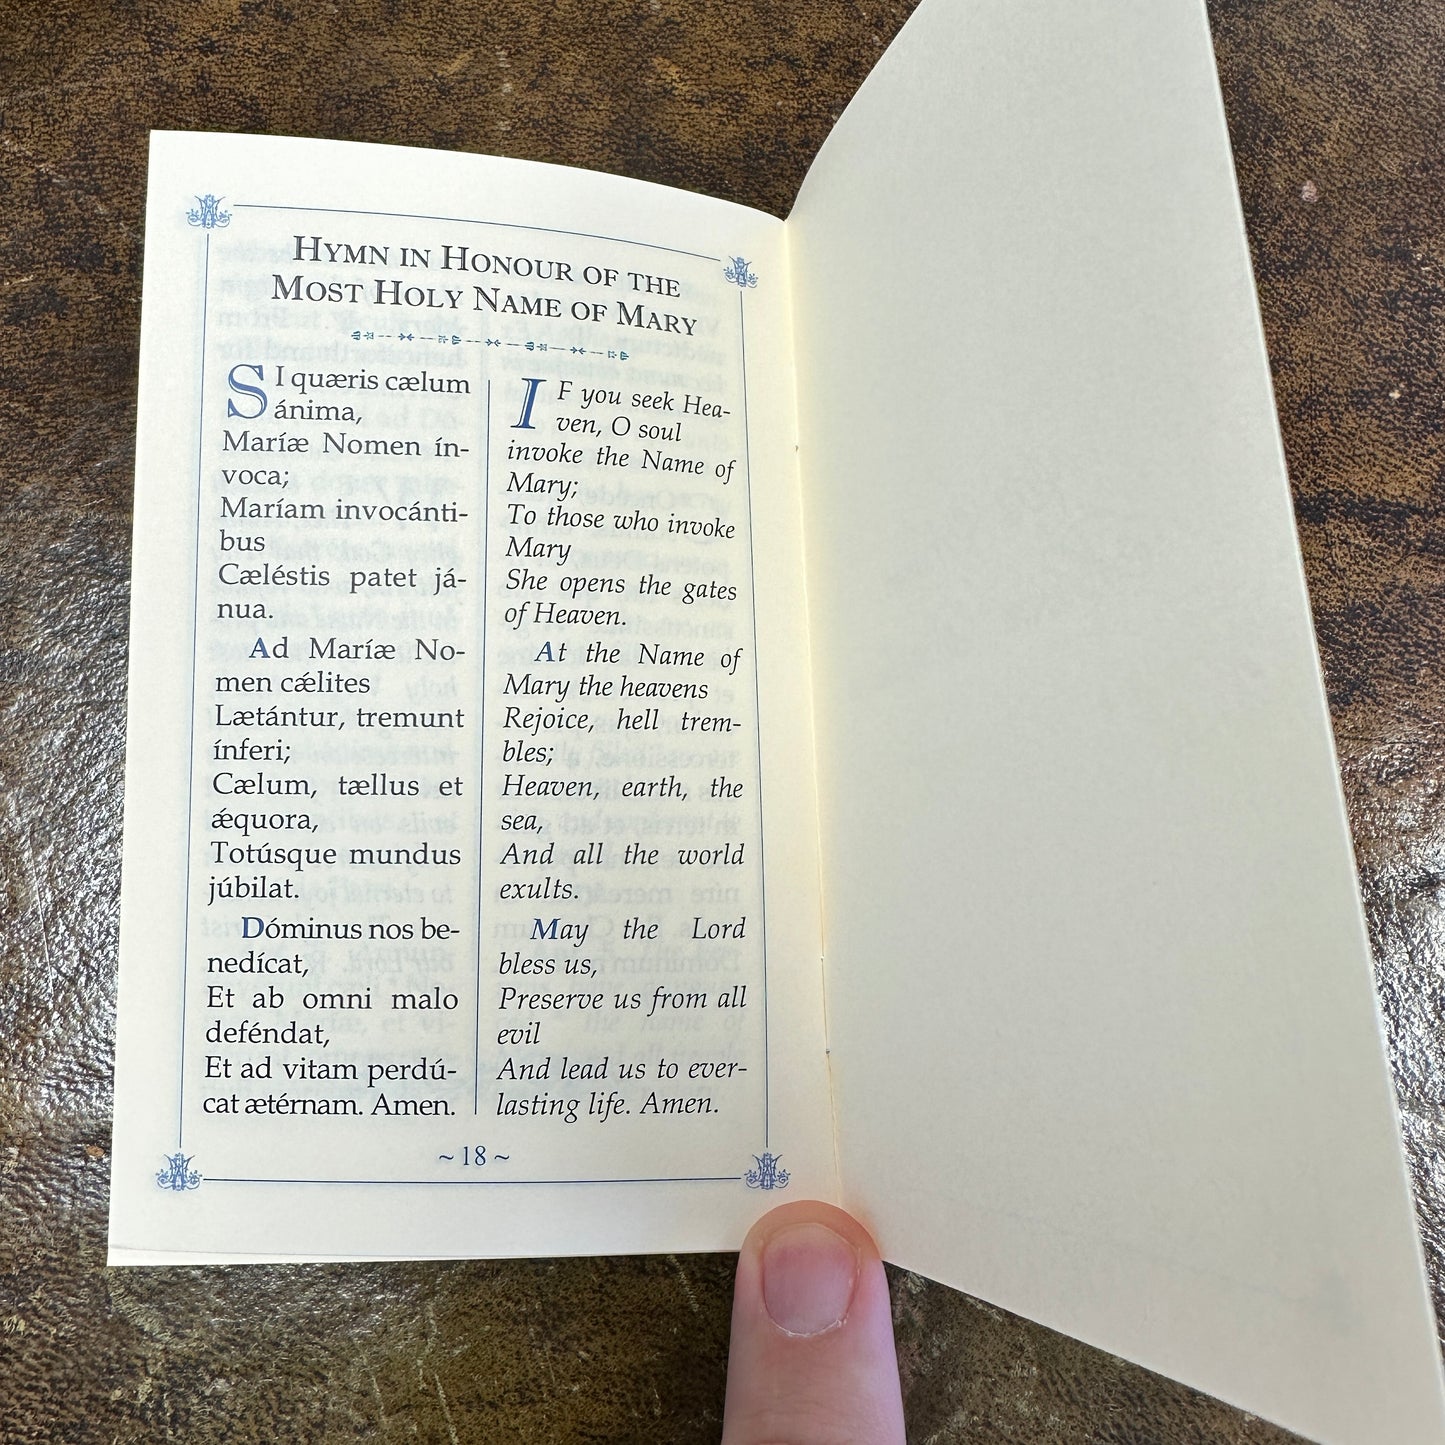 HYMN IN HONOUR OF THE
MOST HOLY NAME OF MARY
SI quæris cælum
ánima,
Maríæ Nomen ín-
voca;
Maríam invocánti-
bus
Cæléstis patet já-
nua.
Ad Maríæ No-
men cǽlites
Lætántur, tremunt
ínferi;
Cælum, tællus et
ǽquora,
Totúsque mundus
júbilat.
Dóminus nos be-
nedícat,
Et ab omni malo
deféndat,
Et ad vitam perdú-
cat ætérnam. Amen.
IF you seek Hea-
ven, O soul
invoke the Name of
Mary;
To those who invoke
Mary
She opens the gates
of Heaven.
At the Name of
Mary the heavens
Rejoice, hell trem-
bles;
Heaven, earth, the
sea,
And all the world
exults.
May the Lord
bless us,
Preserve us from all
evil
And lead us to ever-
lasting life. Amen.
~ 18 ~